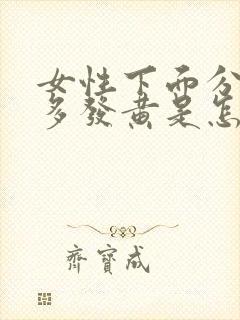 女性下面分
多發黃是怎
齊寶成